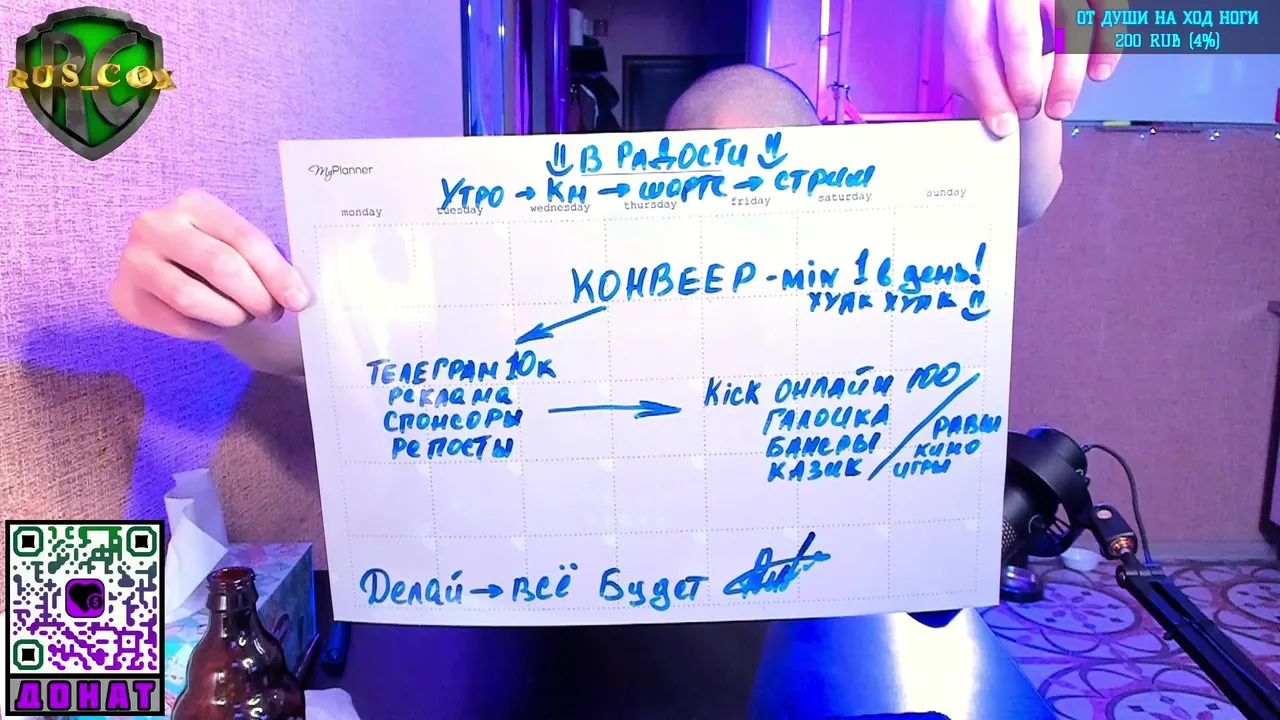 RC
RUS_COX
ОТ ДУШИ НА ХОД НОГИ
200 RUB (4%)
MyPlanner
!! В РАДОСТИ !!
Утро → Км → шортс → стрим
monday tuesday wednesday thursday friday saturday sunday
КОНВЕЕР - min 1 в день!
ХУЯК ХУЯК !!
ТЕЛЕГРАМ 10к
РЕКЛАМА
СПОНСОРЫ
РЕПОСТЫ
Kick ОНЛАЙН 100
ГАЛОЧКА
БАНЕРЫ
КАЗИК
РАВЫ
КИНО
ИГРЫ
Делай → всё Будет
ДОНАТ